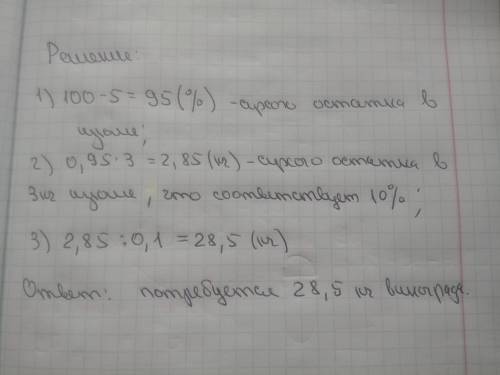 Решение:
1) 100-5=95(%) -сухого остатка в
изюме;
2) 0,95·3=2,85(кг)-сухого остатка в
3кг изюме, что соответствует 10%;
3) 2,85:0,1=28,5(кг)
Ответ: потребуется 28,5 кг винограда.